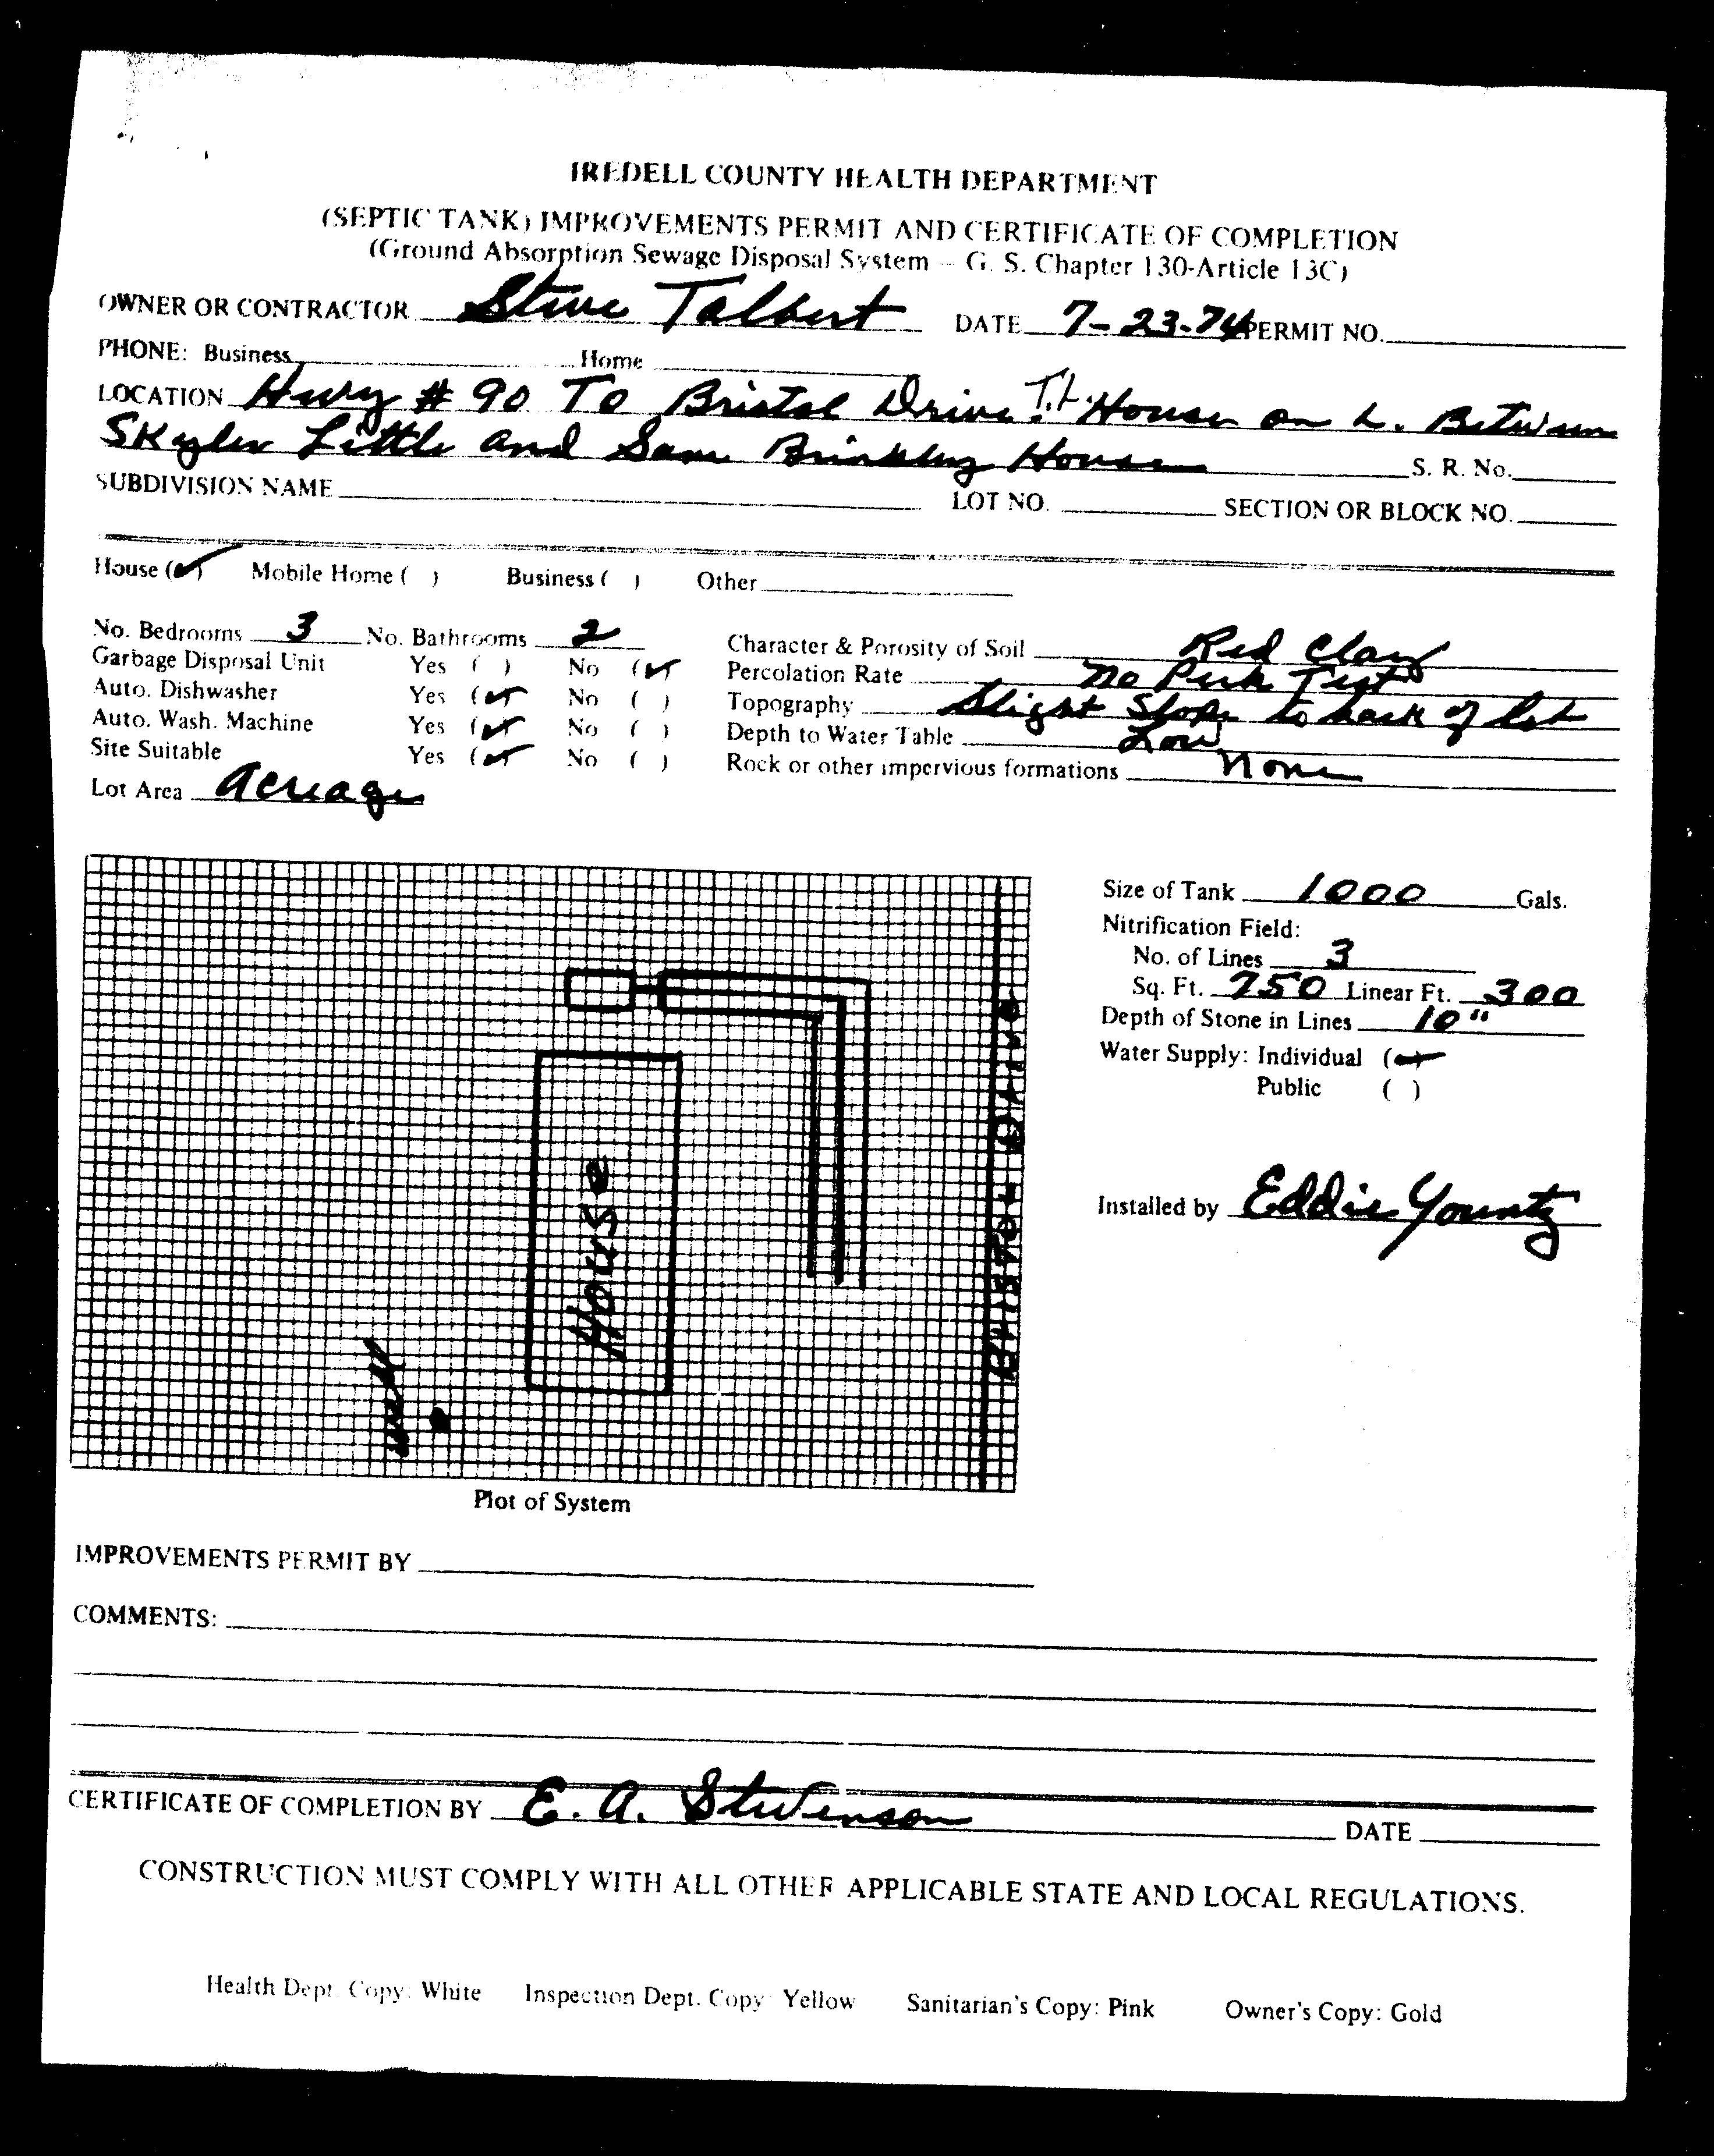 IREDELL COUNTY HEALTH DEPARTMENT
(SEPTIC TANK) IMPROVEMENTS PERMIT AND CERTIFICATE OF COMPLETION
(Ground Absorption Sewage Disposal System - G. S. Chapter 130-Article 13C)
OWNER OR CONTRACTOR Steve Talbert DATE 7-23-74 PERMIT NO.
PHONE: Business Home
LOCATION Hwy # 90 To Bristol Drive T.L. House on L. Between
Skyler Little and Sam Brinkley House S. R. No.
SUBDIVISION NAME LOT NO. SECTION OR BLOCK NO.
House (✓) Mobile Home ( ) Business ( ) Other
No. Bedrooms 3 No. Bathrooms 2 Character & Porosity of Soil Red Clay
Garbage Disposal Unit Yes ( ) No (✓) Percolation Rate No Perk Test
Auto. Dishwasher Yes (✓) No ( ) Topography Slight Slope to back of lot
Auto. Wash. Machine Yes (✓) No ( ) Depth to Water Table Low
Site Suitable Yes (✓) No ( ) Rock or other impervious formations None
Lot Area Acreage
Size of Tank 1000 Gals.
Nitrification Field:
No. of Lines 3
Sq. Ft. 750 Linear Ft. 300
Depth of Stone in Lines 10"
Water Supply: Individual (✓)
Public ( )
Installed by Eddie Yountz
House
Well
BRISTOL DRIVE
Plot of System
IMPROVEMENTS PERMIT BY
COMMENTS:
CERTIFICATE OF COMPLETION BY E. A. Stevenson DATE
CONSTRUCTION MUST COMPLY WITH ALL OTHER APPLICABLE STATE AND LOCAL REGULATIONS.
Health Dept. Copy: White Inspection Dept. Copy Yellow Sanitarian's Copy: Pink Owner's Copy: Gold